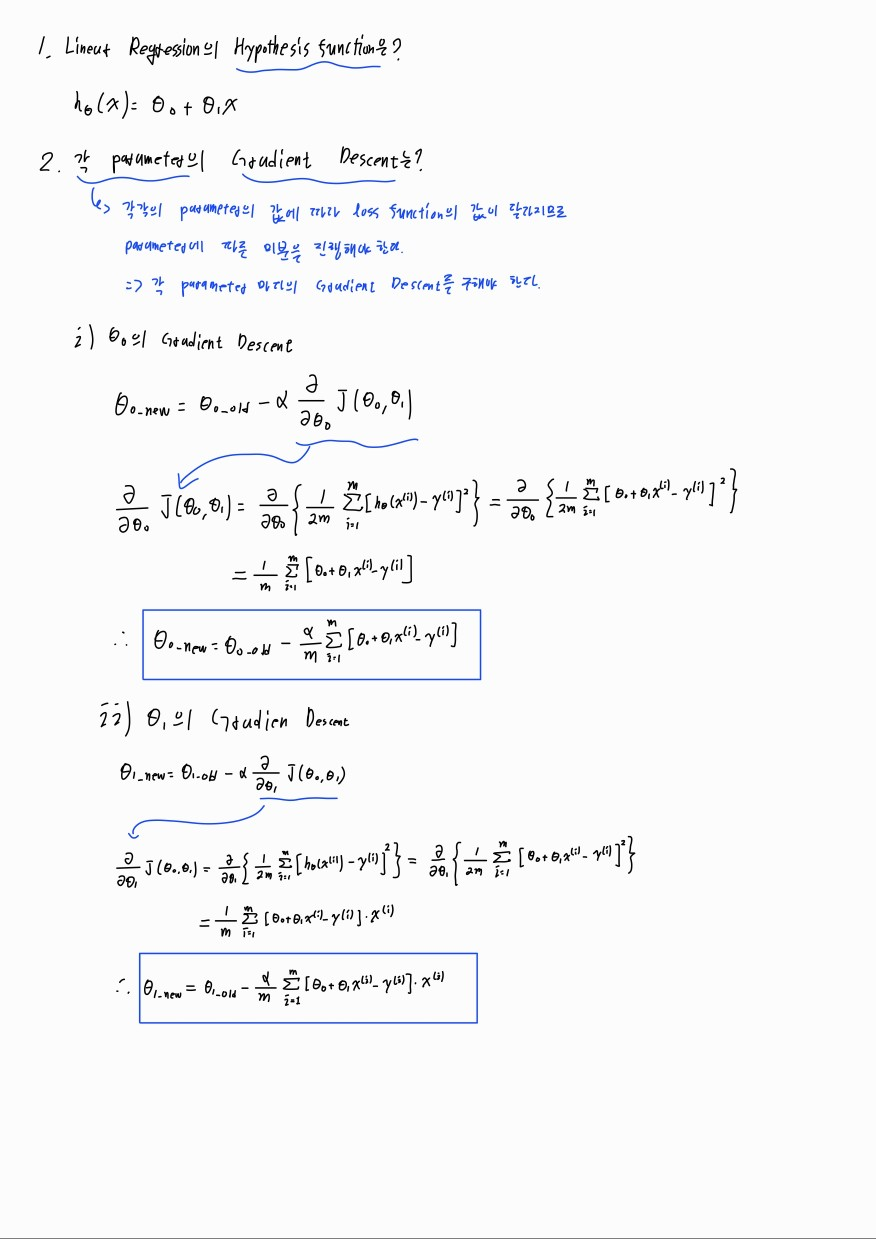 1. Linear Regression의 Hypothesis function은?
hθ(x) = θ₀ + θ₁x
2. 각 parameter의 Gradient Descent는?
↳ 각각의 parameter의 값에 따라 loss function의 값이 달라지므로
parameter에 따른 미분을 진행해야 한다.
=> 각 parameter 마다의 Gradient Descent를 구해야 한다.
i) θ₀의 Gradient Descent
θ₀_new = θ₀_old - α ∂/∂θ₀ J(θ₀, θ₁)
∂/∂θ₀ J(θ₀, θ₁) = ∂/∂θ₀ { 1/2m Σ_{i=1}^{m} [hθ(x⁽ⁱ⁾) - y⁽ⁱ⁾]² } = ∂/∂θ₀ { 1/2m Σ_{i=1}^{m} [θ₀ + θ₁x⁽ⁱ⁾ - y⁽ⁱ⁾]² }
= 1/m Σ_{i=1}^{m} [θ₀ + θ₁x⁽ⁱ⁾ - y⁽ⁱ⁾]
∴ θ₀_new = θ₀_old - α/m Σ_{i=1}^{m} [θ₀ + θ₁x⁽ⁱ⁾ - y⁽ⁱ⁾]
ii) θ₁의 Gradien Descent
θ₁_new = θ₁_old - α ∂/∂θ₁ J(θ₀, θ₁)
∂/∂θ₁ J(θ₀, θ₁) = ∂/∂θ₁ { 1/2m Σ_{i=1}^{m} [hθ(x⁽ⁱ⁾) - y⁽ⁱ⁾]² } = ∂/∂θ₁ { 1/2m Σ_{i=1}^{m} [θ₀ + θ₁x⁽ⁱ⁾ - y⁽ⁱ⁾]² }
= 1/m Σ_{i=1}^{m} [θ₀ + θ₁x⁽ⁱ⁾ - y⁽ⁱ⁾] · x⁽ⁱ⁾
∴ θ₁_new = θ₁_old - α/m Σ_{i=1}^{m} [θ₀ + θ₁x⁽ⁱ⁾ - y⁽ⁱ⁾] · x⁽ⁱ⁾